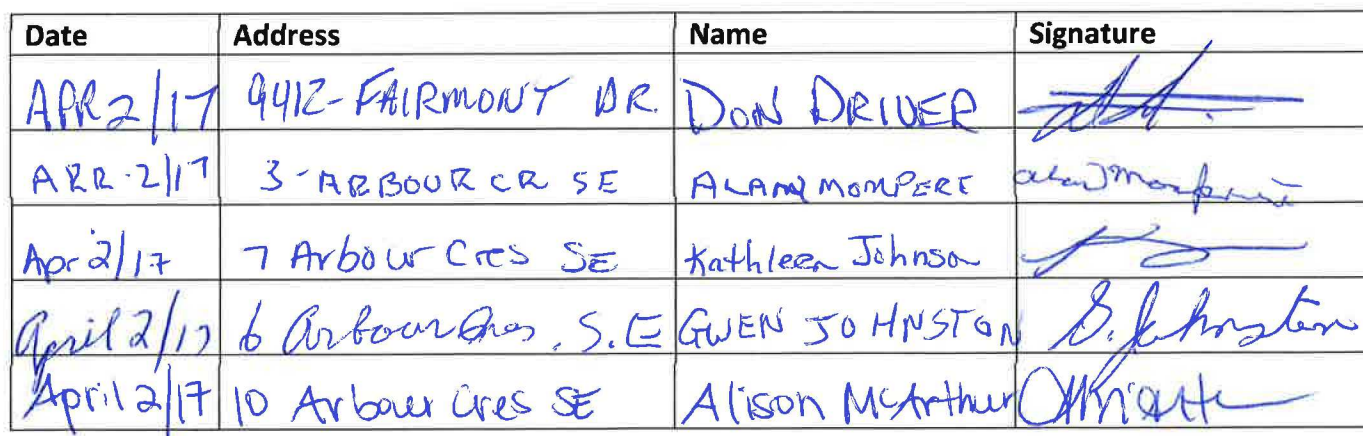 Date Address Name Signature
APR 2/17 9412-FAIRMONT DR. DON DRIVER
APR. 2/17 3-ARBOUR CR SE ALAN MOMPERE
Apr 2/17 7 Arbour Cres SE Kathleen Johnson
April 2/17 6 Arbour Cres. S.E GWEN JOHNSTON G. Johnston
April 2/17 10 Arbour Cres SE Alison McArthur